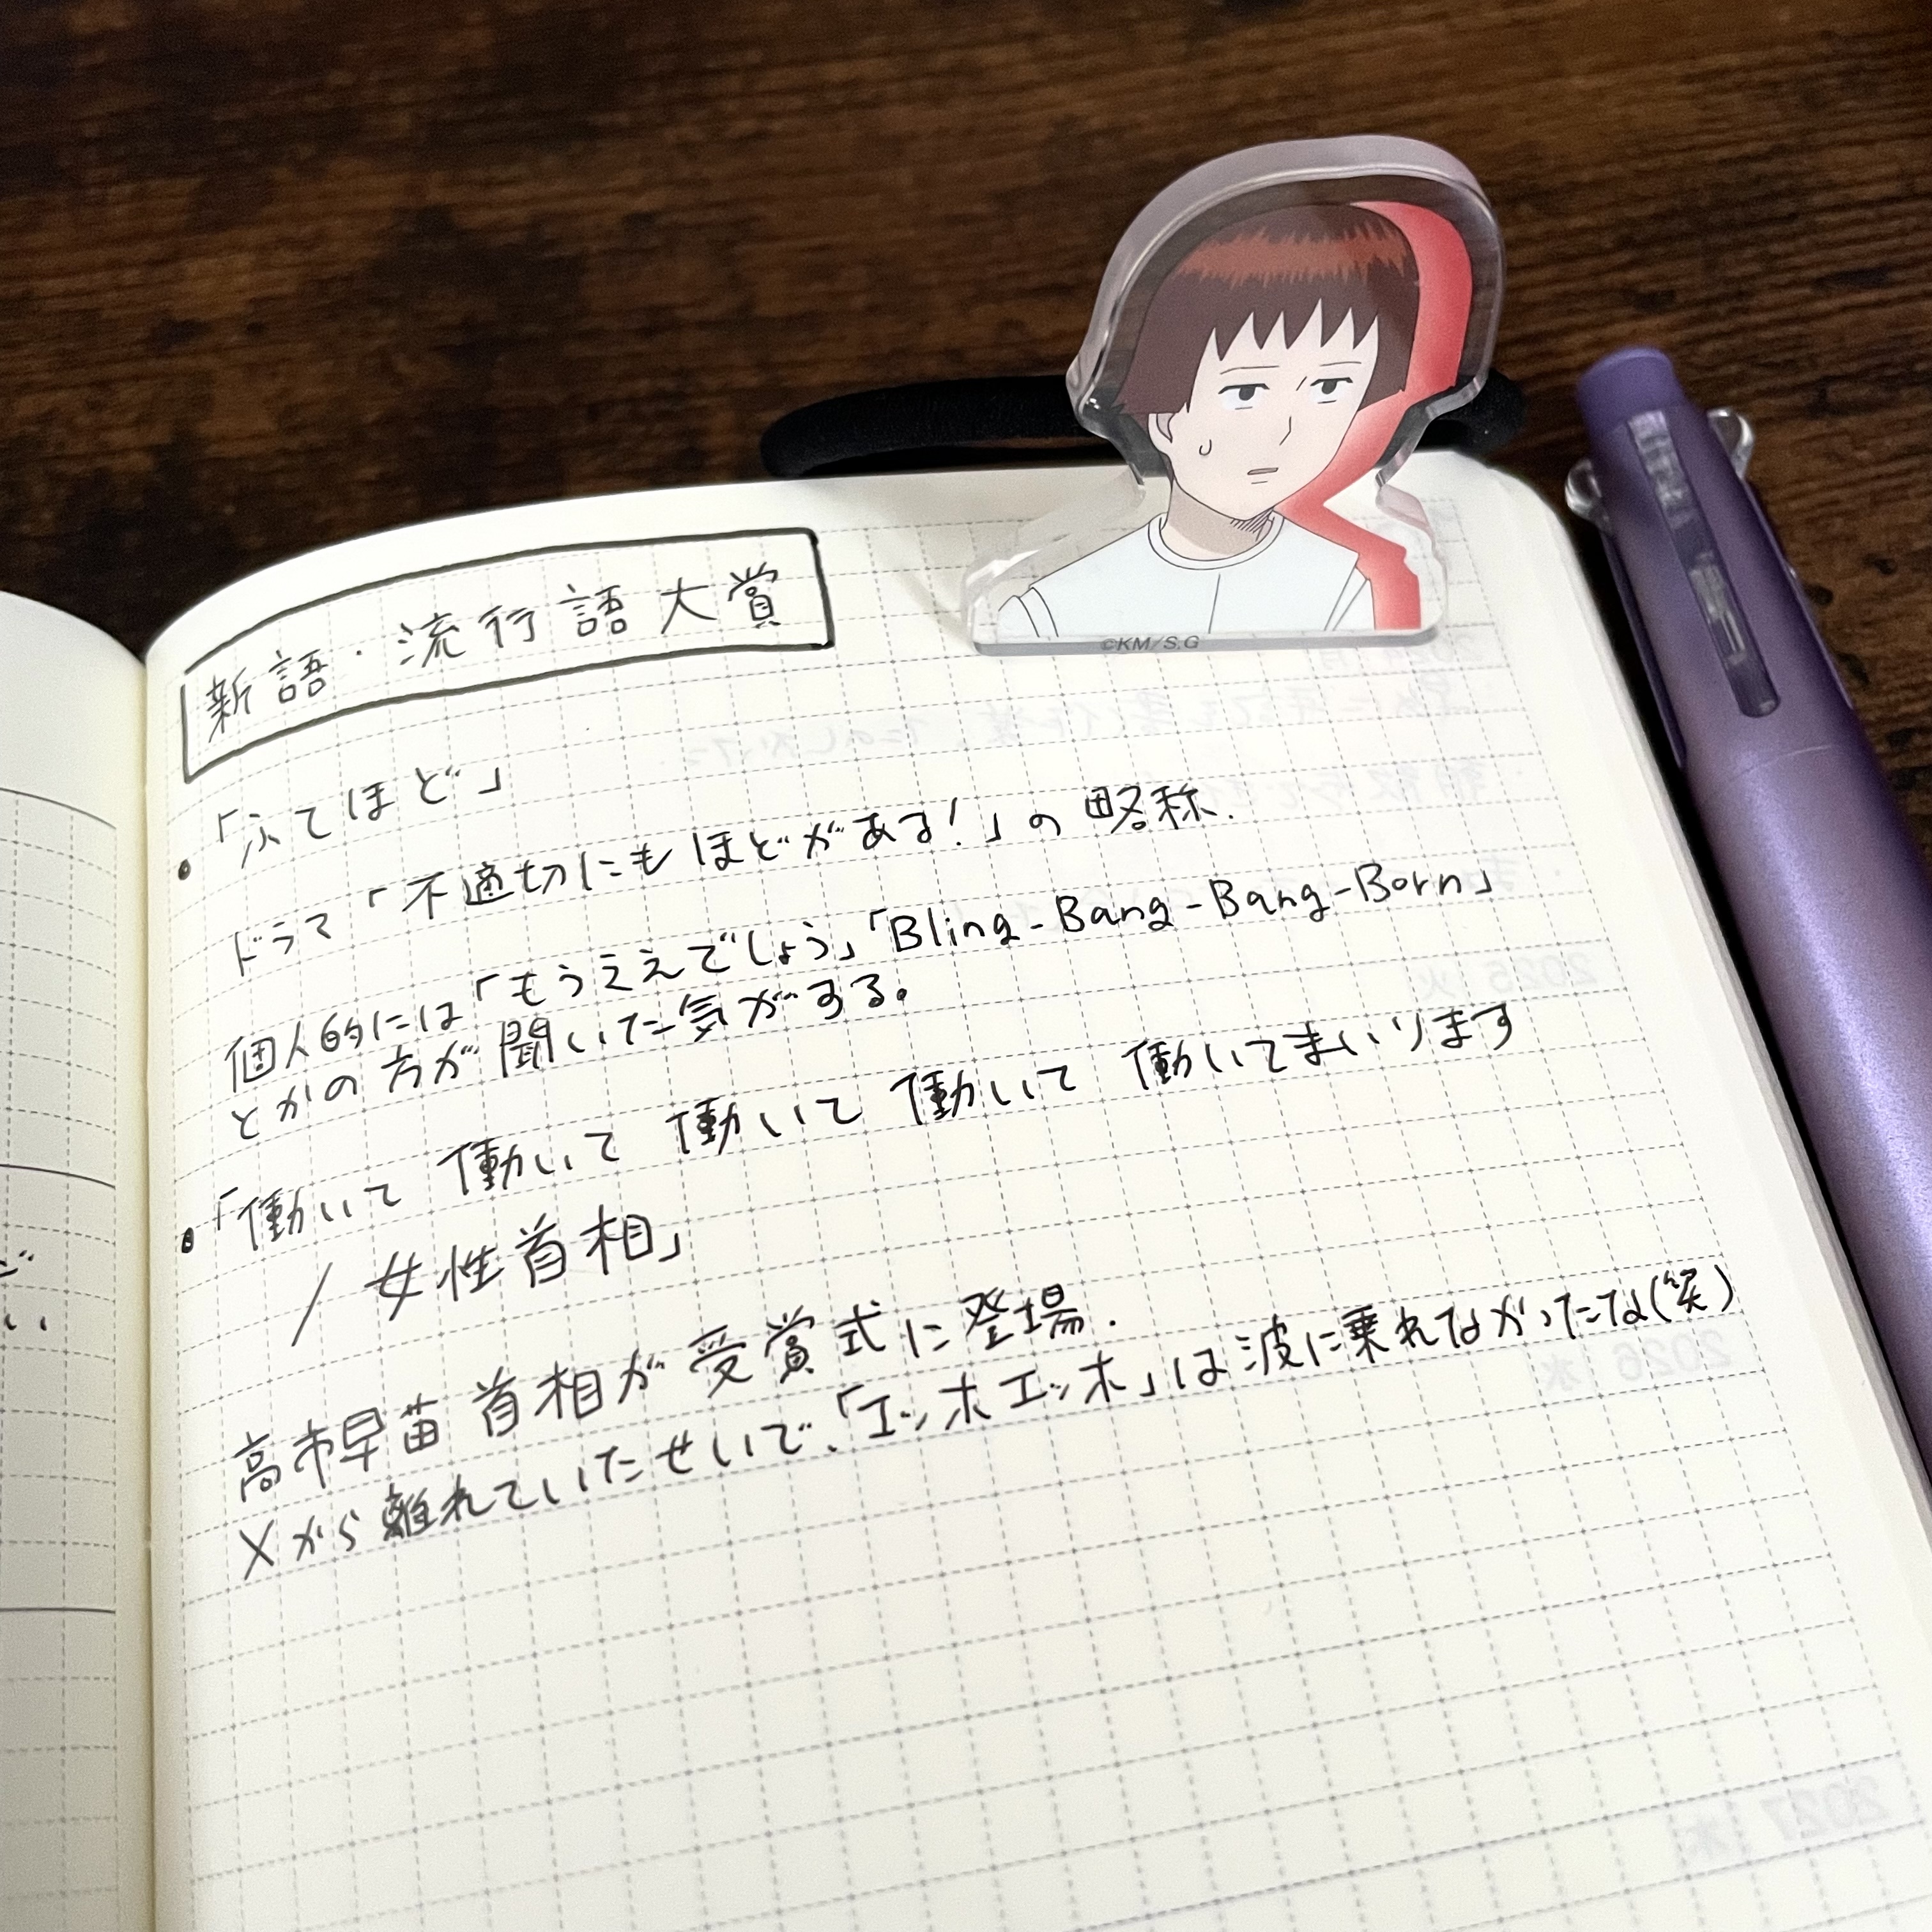 新語・流行語大賞
「ふてほど」
ドラマ「不適切にもほどがある!」の略称.
個人的には「もうええでしょう」「Bling-Bang-Bang-Born」
とかの方が聞いていた気がする。
「働いて 働いて 働いて 働いて 働いてまいります
/ 女性首相」
高市早苗首相が受賞式に登場.
Xから離れていたせいで、「エッホエッホ」は波に乗れなかったな(笑)
©KM/S,G
2025 火
2026 水
2027 木